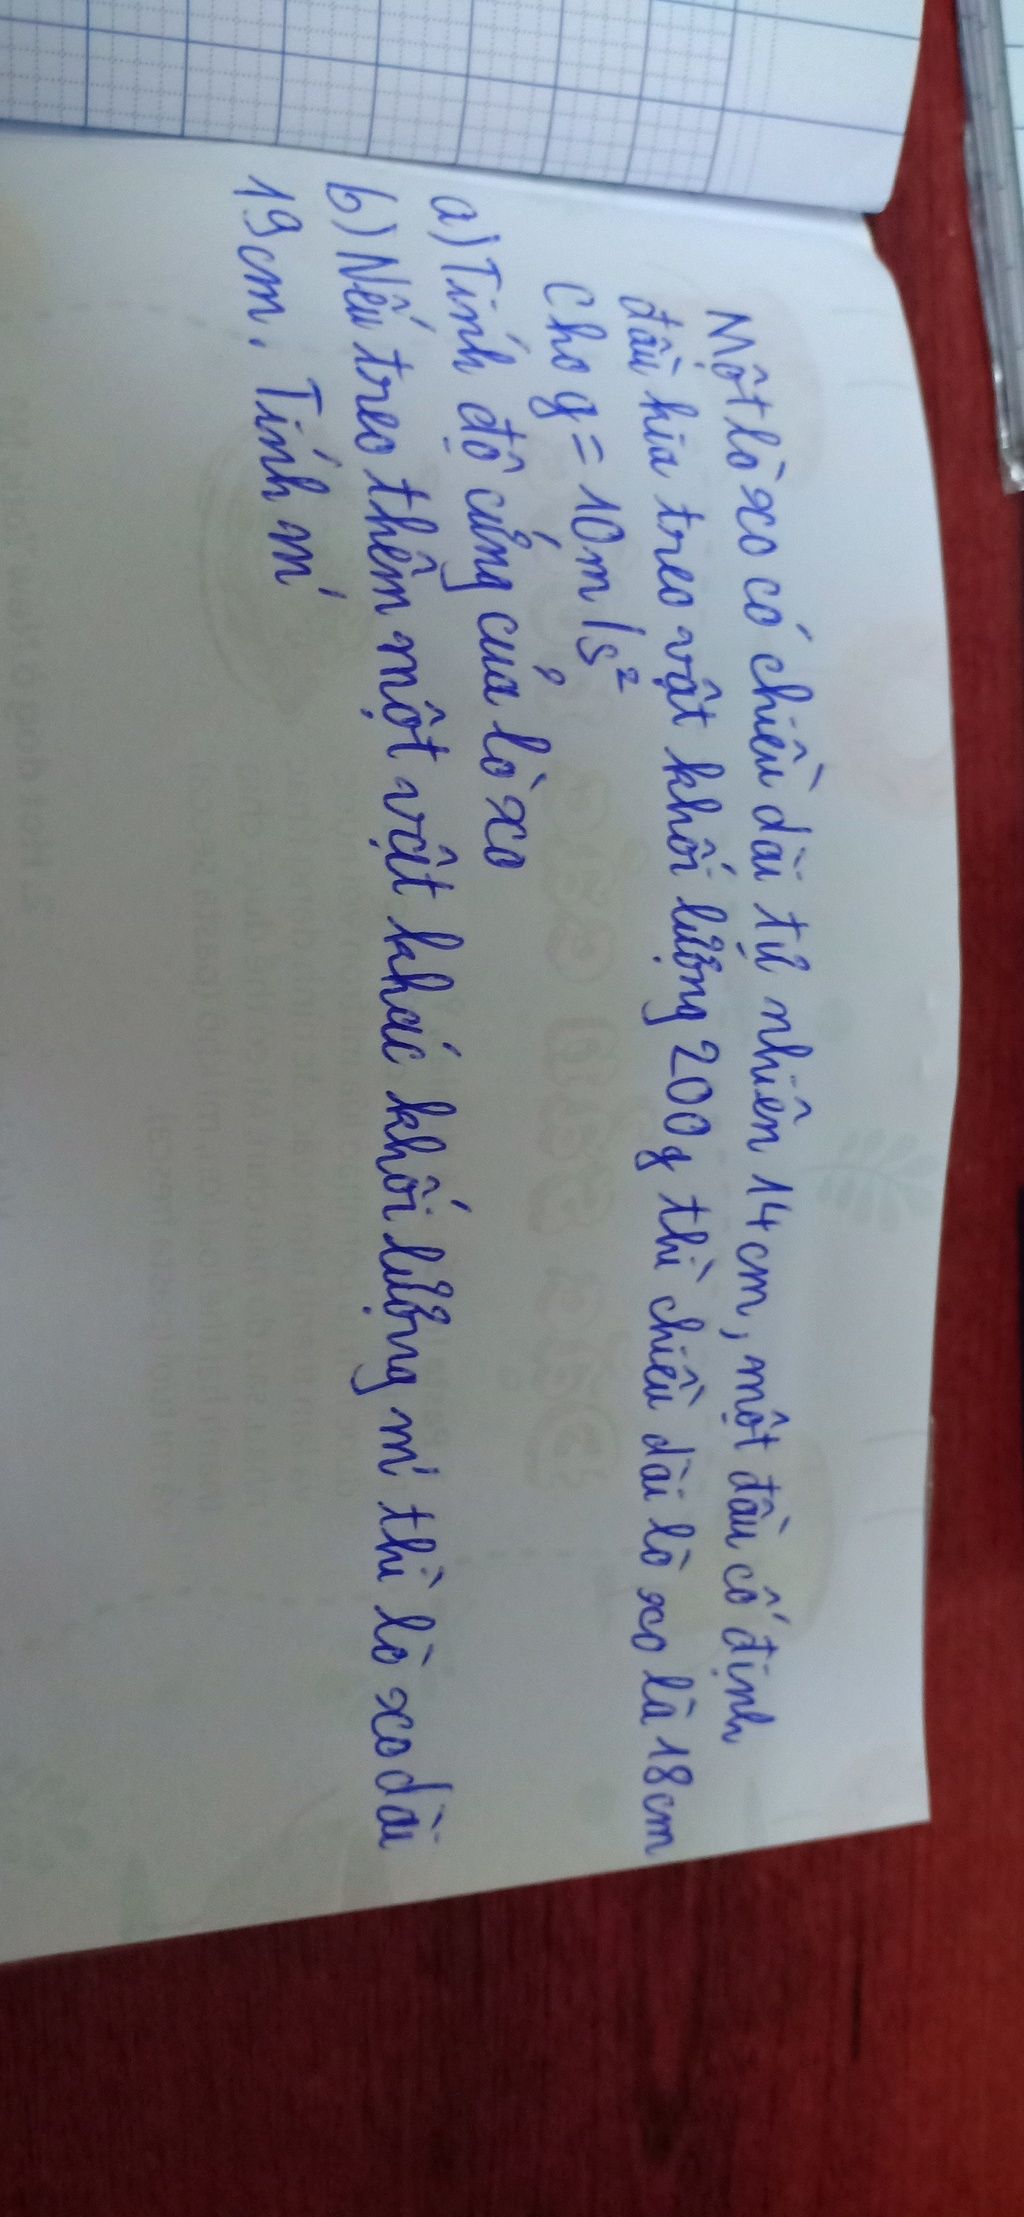 Một lò xo có chiều dài tự nhiên 14cm, một đầu cố định
đầu kia treo vật khối lượng 200g thì chiều dài lò xo là 18cm
Cho g = 10m/s²
a) Tính độ cứng của lò xo
b) Nếu treo thêm một vật khác khối lượng m' thì lò xo dài
19cm. Tính m'